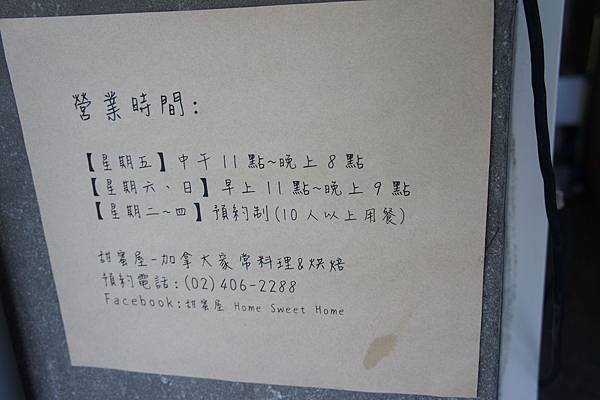 營業時間:
【星期五】中午 11 點~晚上 8 點
【星期六、日】早上 11 點~晚上 9 點
【星期二~四】預約制(10 人以上用餐)
甜蜜屋-加拿大家常料理&烘焙
預約電話:(02)406-2288
Facebook:甜蜜屋 Home Sweet Home